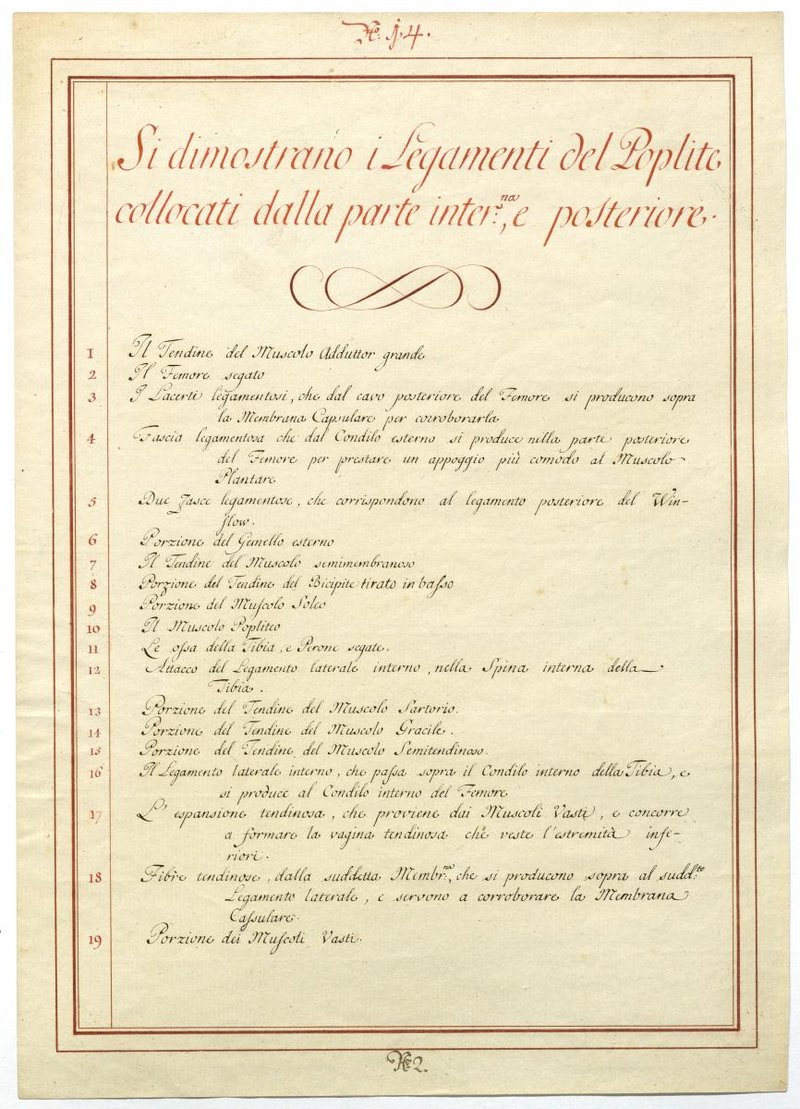 No. 14.
Si dimostrano i Legamenti del Poplite
collocati dalla parte inter:na, e posteriore.
1 Il Tendine del Muscolo Adduttor grande
2 Il Femore segato
3 I Lacerti legamentosi, che dal cavo posteriore del Femore si producono sopra
la Membrana Capsulare per corroborarla
4 Fascia legamentosa che dal Condilo esterno si produce nella parte posteriore
del Femore per prestare un appoggio più comodo al Muscolo
Plantare
5 Due Fasce legamentose, che corrispondono al legamento posteriore del Win-
slow.
6 Porzione del Gemello esterno
7 Il Tendine del Muscolo semimembranoso
8 Porzione del Tendine del Bicipite tirato in baſso
9 Porzione del Muſcolo Soleo
10 Il Muscolo Popliteo
11 Le oſsa della Tibia, e Perone segate.
12 Attacco del Legamento laterale interno, nella Spina interna della
Tibia.
13 Porzione del Tendine del Muscolo Sartorio.
14 Porzione del Tendine del Muscolo Gracile.
15 Porzione del Tendine del Muscolo Semitendinoso.
16 Il Legamento laterale interno, che paſsa sopra il Condilo interno della Tibia, e
si produce al Condilo interno del Femore
17 L'espansione tendinosa, che proviene dai Muscoli Vasti, e concorre
a formare la vagina tendinosa che veste l'estremità infe-
riori.
18 Fibre tendinose, dalla suddetta Membr:na, che si producono sopra al sudd:to
Legamento laterale, e servono a corroborare la Membrana
Caſsulare.
19 Porzione dei Muſcoli Vasti.
No. 2.